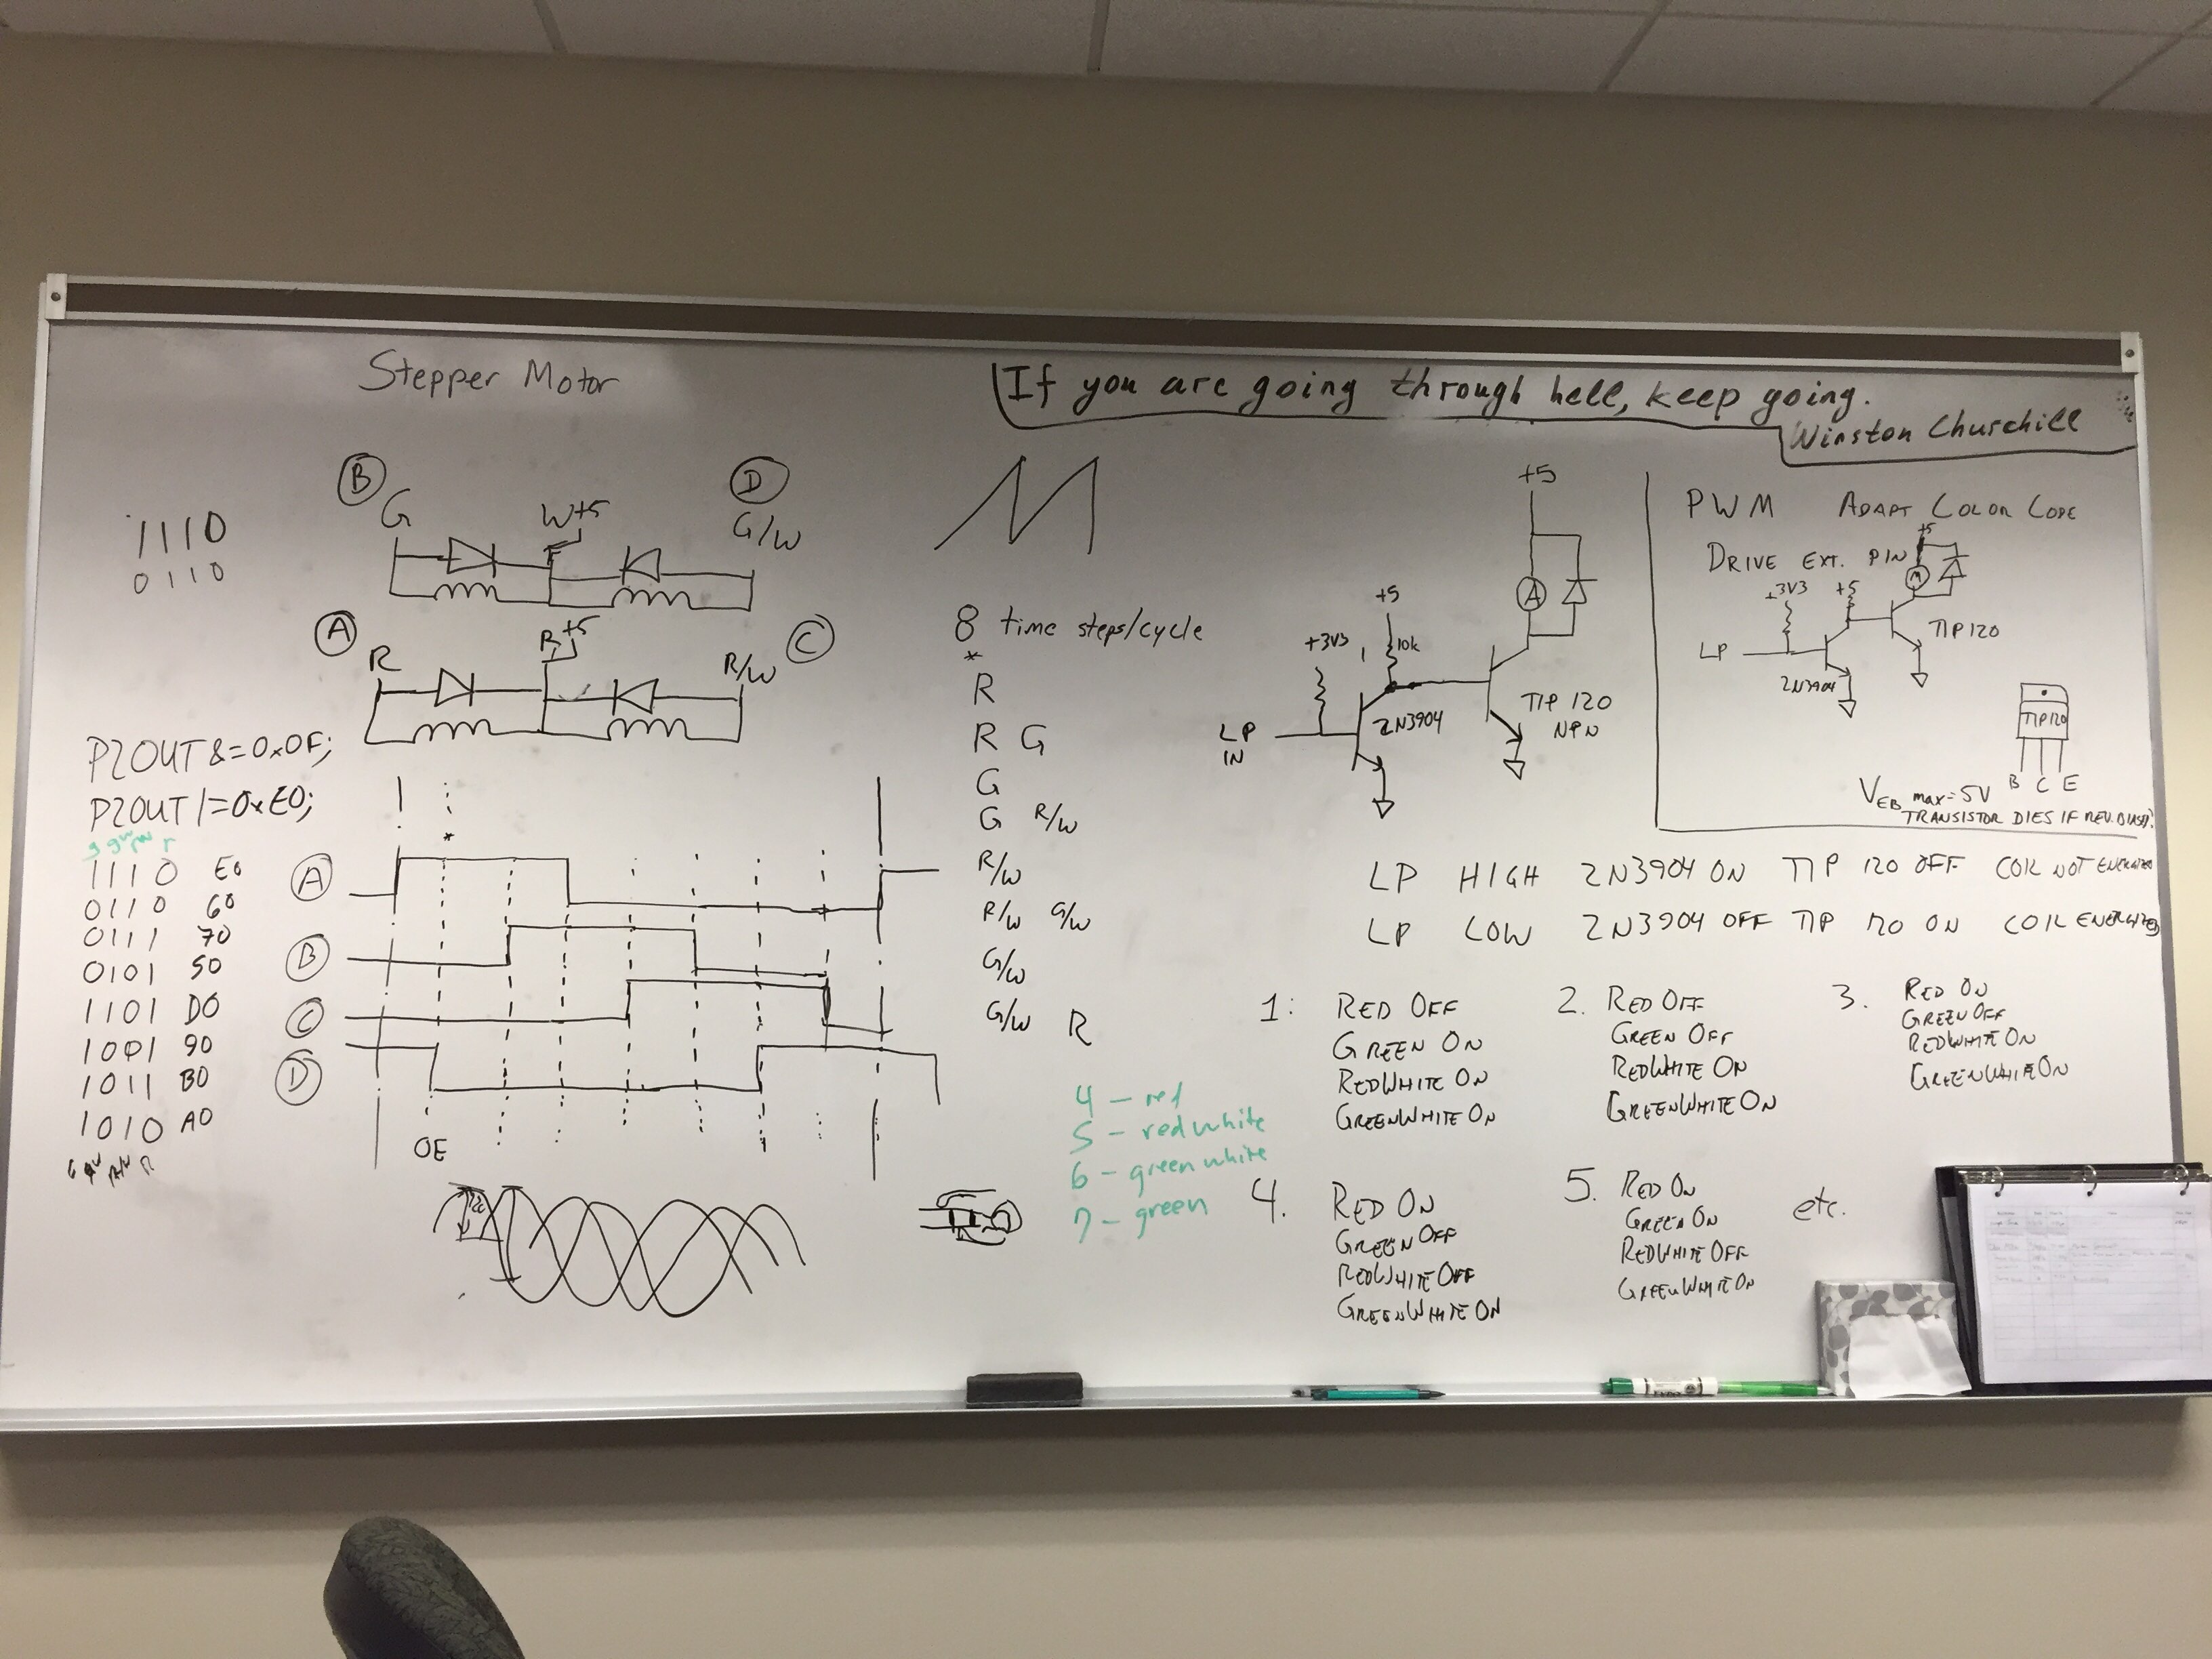 Stepper Motor
If you are going through hell, keep going.
Winston Churchill
1110
0110
B
G
W+5
D
G/W
A
R
B +5
R/W
C
P2OUT &= 0x0F;
P2OUT |= 0xE0;
1110 E0
0110 60
0111 70
0101 50
1101 D0
1001 90
1011 B0
1010 A0
A
B
C
D
*
OE
8 time steps/cycle
*
R
R G
G
G R/W
R/W
R/W G/W
G/W
G/W R
4 - red
5 - redwhite
6 - greenwhite
7 - green
+5
A
+5
10k
+3V3
LP
IN
2N3904
TIP 120
NPN
PWM ADAPT COLOR CODE
DRIVE EXT. PIN
+5
+3V3
+5
LP
2N3904
TIP120
TIP120
B C E
VEB max = 5V
TRANSISTOR DIES IF REV. BIASED.
LP HIGH 2N3904 ON TIP 120 OFF COIL NOT ENERGIZED
LP LOW 2N3904 OFF TIP 120 ON COIL ENERGIZED
1: RED OFF
GREEN ON
REDWHITE ON
GREENWHITE ON
2. RED OFF
GREEN OFF
REDWHITE ON
GREENWHITE ON
3. RED ON
GREEN OFF
REDWHITE ON
GREENWHITE ON
4. RED ON
GREEN OFF
REDWHITE OFF
GREENWHITE ON
5. RED ON
GREEN ON
REDWHITE OFF
GREENWHITE ON
etc.